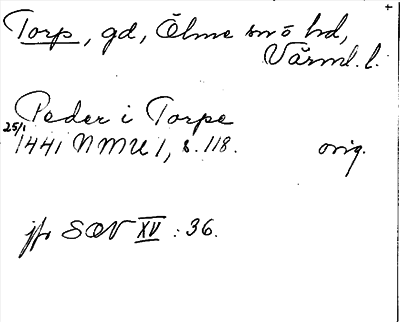 Torp, gd, Ölme sn ö hd,
Värml. l.
Peder i Torpe
25/1 1441 NMU 1, s. 118. orig.
jfr SOV XV : 36.